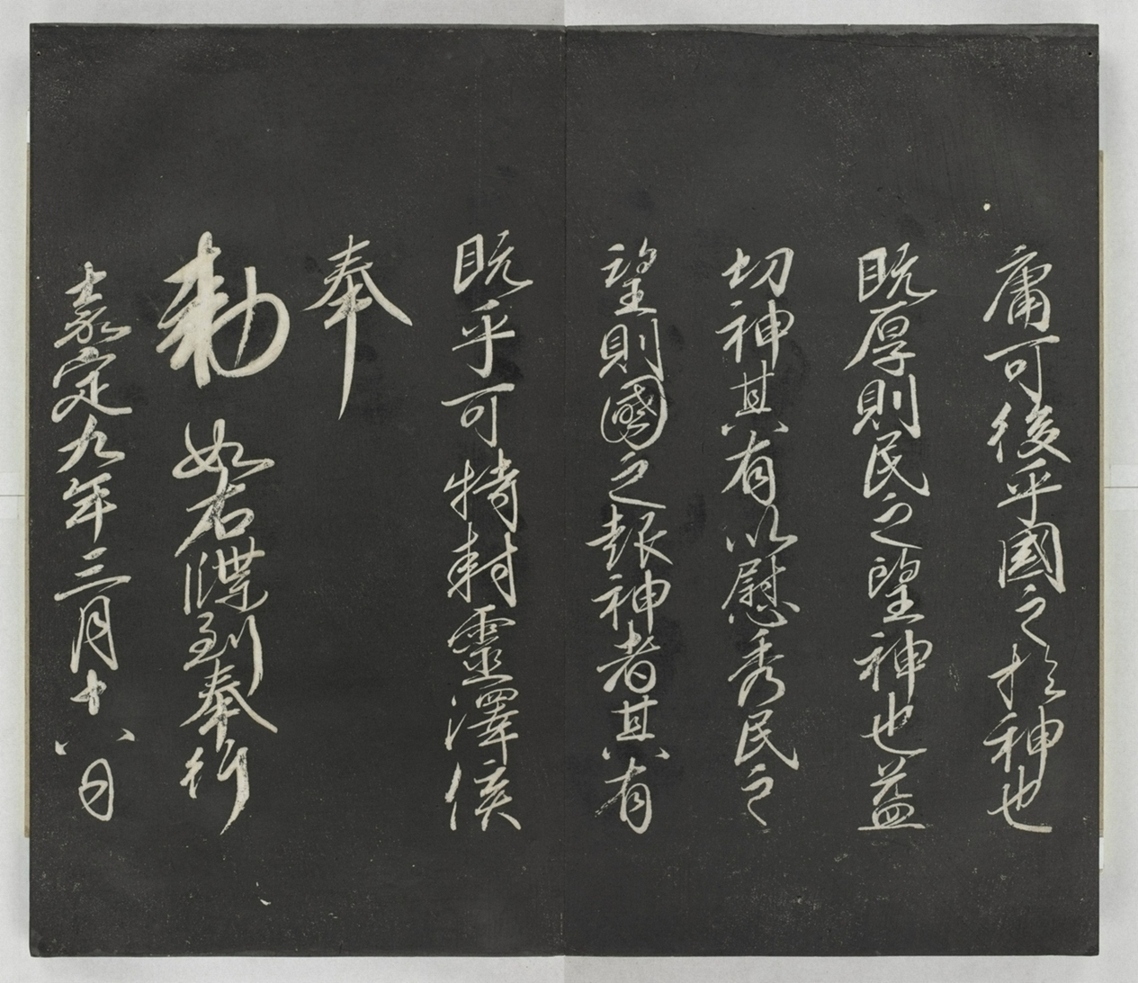 庸可後乎國之於神也
既厚則民之望神也益
切神其有以慰秀民之
望則國之報神者其有
既乎可特封靈澤侯
奉
勑如右牒到奉行
嘉定九年三月十八日